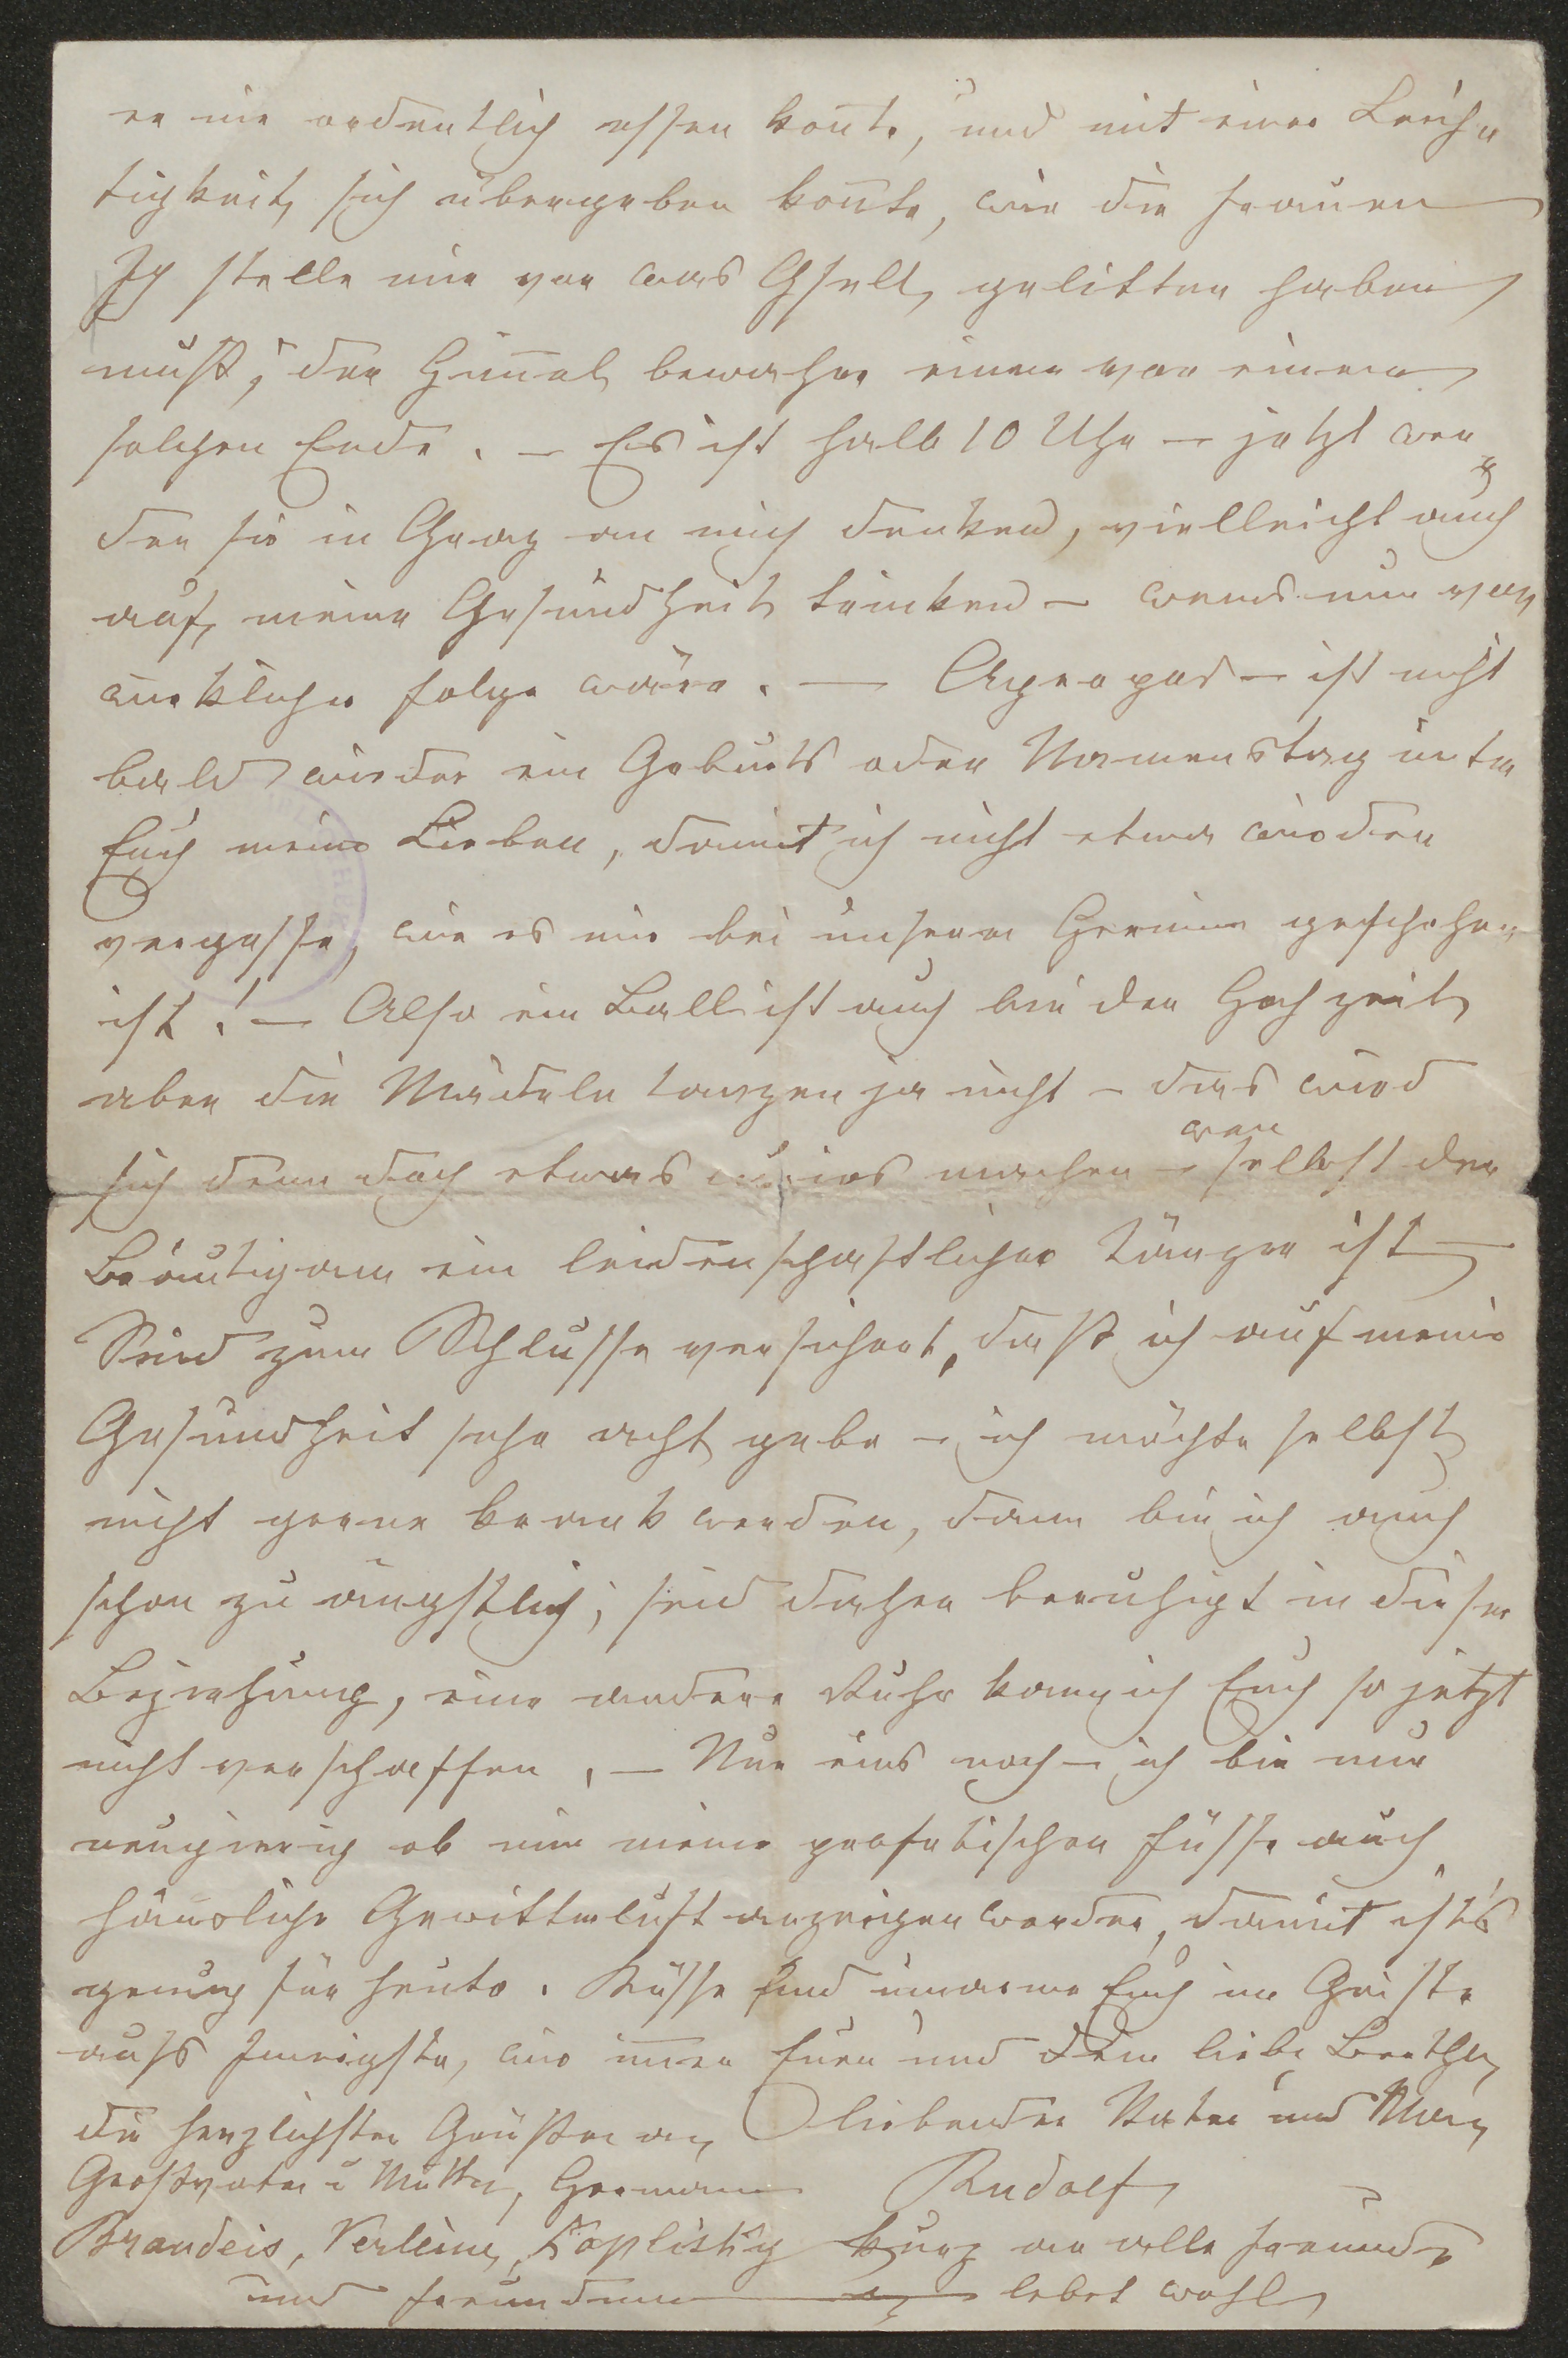 er nie ordentlich essen konnte, und mit einer Leich-
tigkeit sich übergeben konnte, wie die Frauen
Ich stelle mir vor was Gsell gelitten haben
muß, der Himmel bewahre einen vor einem
solchen Ende. — Es ist halb 10 Uhr — jetzt wer-
den sie in Graz an mich denken, vielleicht auch
auf meine Gesundheit trinken — wenns nur von
wirklicher Folge wäre. — Apropos — ist nicht
bald wieder ein Geburts oder Namenstag unter
Euch meine Lieben, damit ich nicht etwa wieder
vergesse, wie es mir bei unserer Hermine geschehen
ist! — Also ein Ball ist auch bei der Hochzeit
aber die Mädeln tanzen ja nicht — das wird
sich denn doch etwas curios machen — wenn selbst der
Bräutigam ein leidenschaftlicher Tänzer ist —
Seid zum Schlusse versichert, daß ich auf meine
Gesundheit sehr acht gebe — ich möchte selbst
nicht gerne krank werden, dann bin ich auch
schon zu ängstlich; seid daher beruhigt in dieser
Beziehung, eine andere Ruhe kann ich Euch so jetzt
nicht verschaffen. — Nur eins noch — ich bin nur
neugierig ob mir meine profetischen Füsse auch
häusliche Gewitterluft anzeigen werden, damit ist's
genug für heute. Küsse und umarme Euch im Geiste
aufs Innigste, wie immer Euer und Dein liebe Bertha
die herzlichsten Grüße an liebender Vater und Mann
Großvater u Mutter, Hermann Rudolf
Brandeis, Verleins, Koplisky kurz an alle Freunde
und Freundinnen lebet wohl